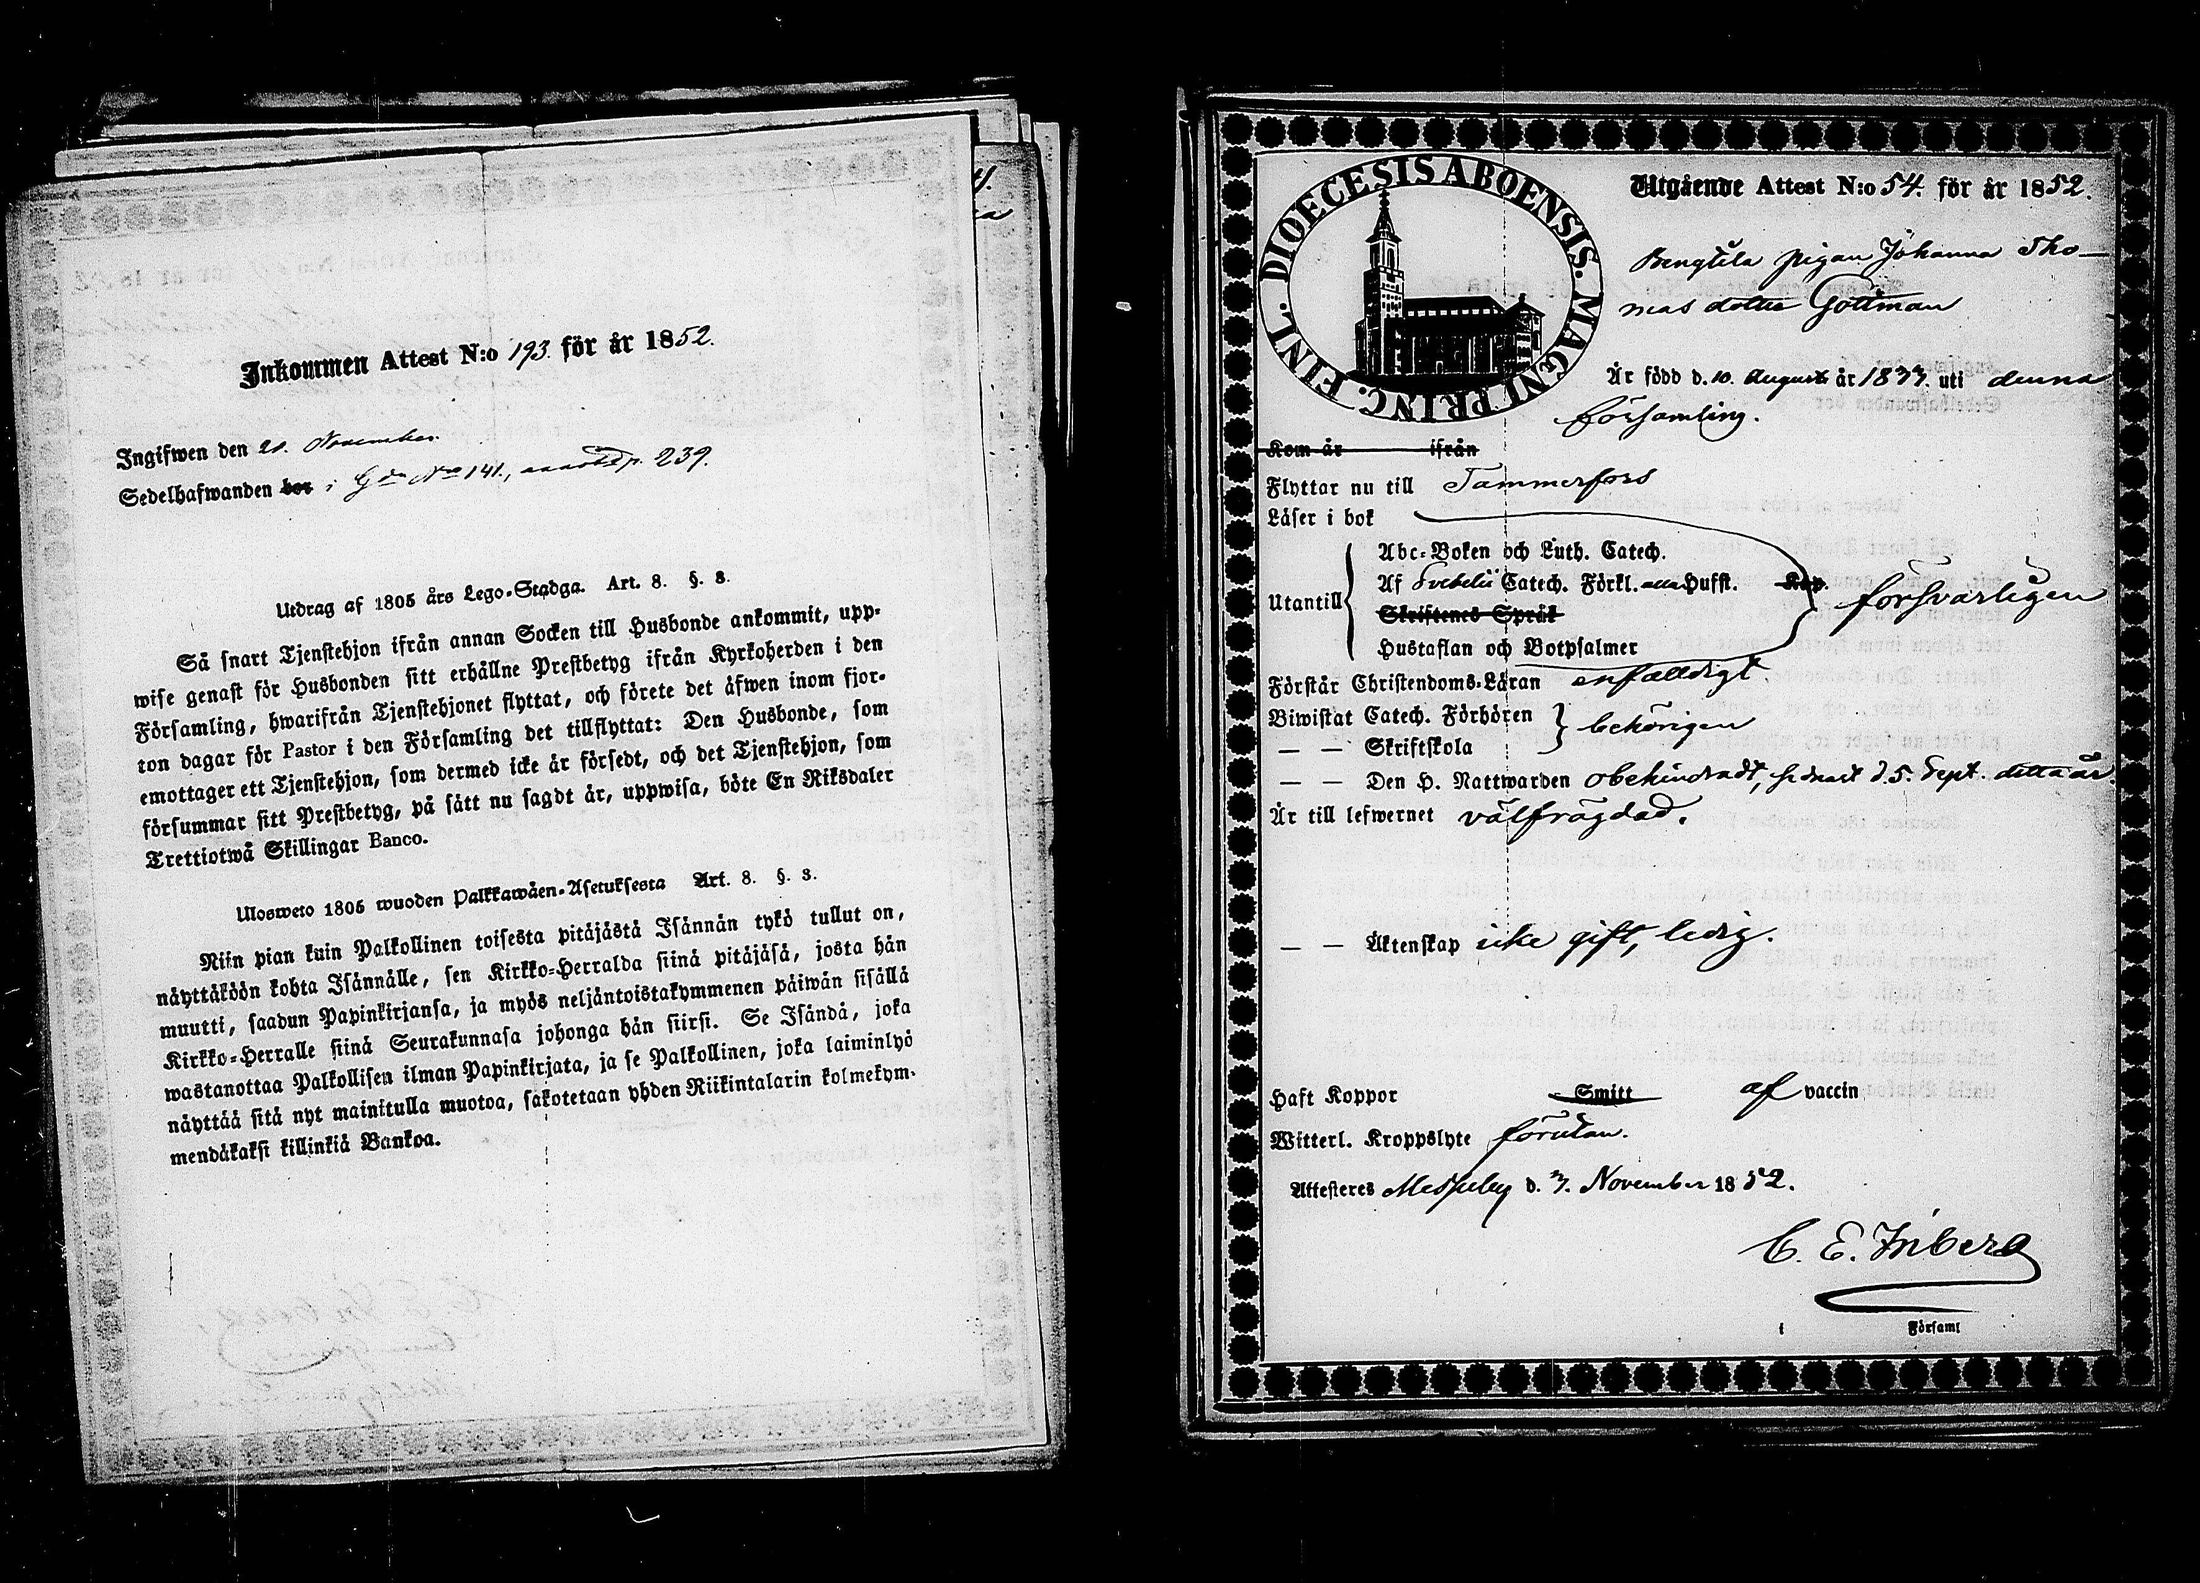 Inkommen Attest N:o 193. för år 1852.
Ingifwen den 21. November.
Sedelhafwanden bor i Gdn No 141., annot. p. 239.
Utdrag af 1805 års Lego-Stadga. Art. 8. §. 3.
Så snart Tjenstehjon ifrån annan Socken till Husbonde ankommit, upp-
wise genast för Husbonden sitt erhållne Prestbetyg ifrån Kyrkoherden i den
Församling, hwarifrån Tjenstehjonet flyttat, och förete det äfwen inom fjor-
ton dagar för Pastor i den Församling det tillflyttat: Den Husbonde, som
emottager ett Tjenstehjon, som dermed icke är försedt, och det Tjenstehjon, som
försummar sitt Prestbetyg, på sätt nu sagdt är, uppwisa, böte En Riksdaler
Trettiotwå Skillingar Banco.
Ulosweto 1805 wuoden Palkkawäen-Asetuksesta Art. 8. §. 3.
Niin pian kuin Palkollinen toisesta pitäjästä Isännän tykö tullut on,
näyttäköön kohta Isännälle, sen Kirkko-Herralda siinä pitäjäsä, josta hän
muutti, saadun Papinkirjansa, ja myös neljäntoistakymmenen päiwän sisällä
Kirkko-Herralle siinä Seurakunnasa johonga hän siirsi. Se Isändä, joka
wastanottaa Palkollisen ilman Papinkirjata, ja se Palkollinen, joka laiminlyö
näyttää sitä nyt mainitulla muotoa, sakotetaan yhden Riikintalarin kolmekym-
mendäkaksi killinkiä Bankoa.
DIOECESIS ABOENSIS. MAGNI PRINC. FINL.
Utgående Attest N:o 54. för år 1852.
Bengtila pigan Johanna Tho-
mas dotter Gottman
Är född d. 10. August år 1833. uti denna
församling.
Kom år ifrån
Flyttar nu till Tammerfors
Läser i bok
Abc-Boken och Luth. Catech.
Utantill Af Svebelii Catech. Förkl. alla Hufst. Kap. försvarligen
Skriftenes Språk
Hustaflan och Botpsalmer
Förstår Christendoms-Läran enfaldigt
Biwistat Catech. Förhören behörigen
— — Skriftskola
— — Den H. Nattwarden obehindradt, sednast d. 5. Sept. detta år.
Är till lefwernet välfrägdad.
— — Äktenskap icke gift, ledig.
Haft Koppor Smitt af vaccin
Witterl. Kroppslyte förutan.
Attesteres Messuby d. 3. November 1852.
C. E. Friberg
i Församl